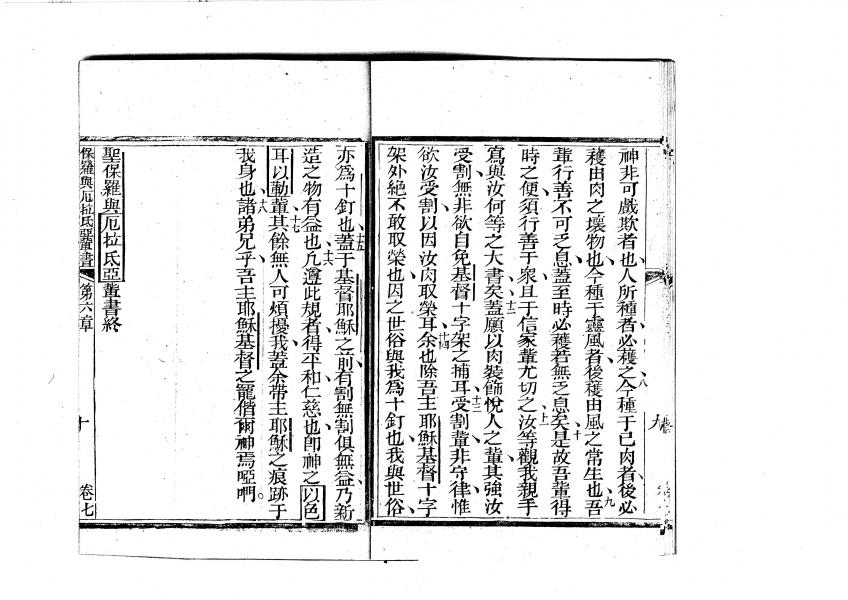 神非可戲欺者也人所種者必穫之今種于己肉者後必
八
穫由肉之壞物也今種于靈風者後穫由風之常生也吾
九
輩行善不可乏息蓋至時必穫若無乏息矣是故吾輩得
十
時之便須行善于衆且于信家輩尤切之汝等觀我親手
十一
寫與汝何等之大書矣蓋願以肉裝飾悅人之輩其強汝
十二
受割無非欲自免基督十字架之捕耳受割輩非守律惟
十三
欲汝受割以因汝肉取榮耳余也除吾主耶穌基督十字
十四
架外絕不敢取榮也因之世俗與我為十釘也我與世俗
亦為十釘也蓋于基督耶穌之前有割無割俱無益乃新
十五
造之物有益也凡遵此規者得平和仁慈也卽神之以色
十六
耳以勷輩其餘無人可煩擾我蓋余帶主耶穌之痕跡于
十七
我身也諸弟兄乎吾主耶穌基督之寵偕爾神焉啞們。
十八
聖保羅與厄拉氐亞輩書終
保羅與厄拉氐亞輩書 第六章 十 卷七